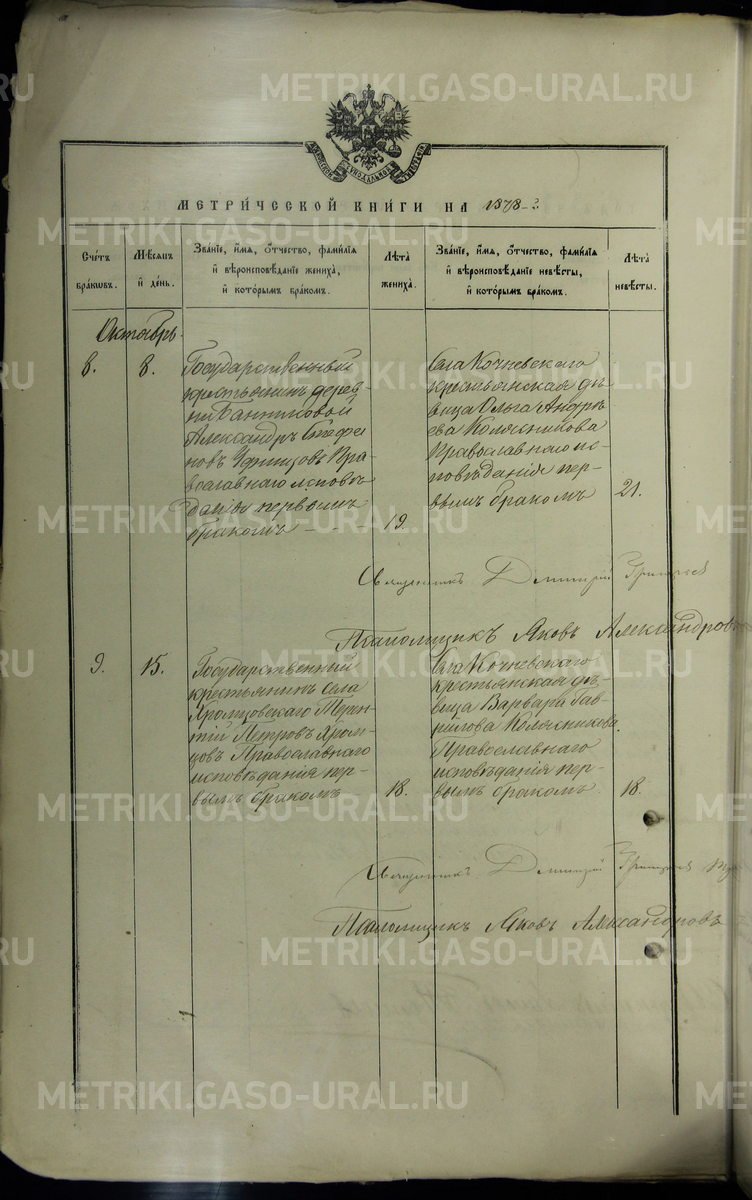 METRIKI.GASO-URAL.RU
МЕТРИ́ЧЕССКОЙ КНИ́ГИ НА 1878
Сче́тъ бра́кшвъ.
Мѣ́сяцъ и҆ де́нь.
Зва́нїе, и҆́мѧ, Ѻ҆́тчество, фами́лїѧ и҆ вѣроисповѣ́данїе жениха̀, и҆ кото́рымъ бра́комъ.
Лѣ́та жениха̀.
Зва́нїе, и҆́мѧ, Ѻ҆́тчество, фами́лїѧ и҆ вѣроисповѣ́данїе невѣ́сты, и҆ кото́рымъ бра́комъ.
Лѣ́та невѣ́сты.
Октябрь.
8.
8.
Государственный
крестьянинъ дерев-
ни
Александръ Стефа
новъ Пра
вославнаго исповѣ
данія первымъ
бракомъ
19.
Села Кочневскаго
крестьянская дѣ
вица Ольга Андре
ева Колясникова
Православнаго ис
повѣданія пер-
вымъ бракомъ
21.
Священникъ Димитрій
Псаломщикъ Яковъ Александровъ
9.
15.
Государственный
крестьянинъ села
Хромцовскаго Терен
тій Петровъ Хром
цовъ Православнаго
исповѣданія пер-
вымъ бракомъ
18.
Села Кочневскаго
крестьянская дѣ-
вица Варвара Гав
рилова Колясникова.
Православнаго
исповѣданія пер-
вымъ бракомъ
18.
Священникъ Димитрій
Псаломщикъ Яковъ Александровъ